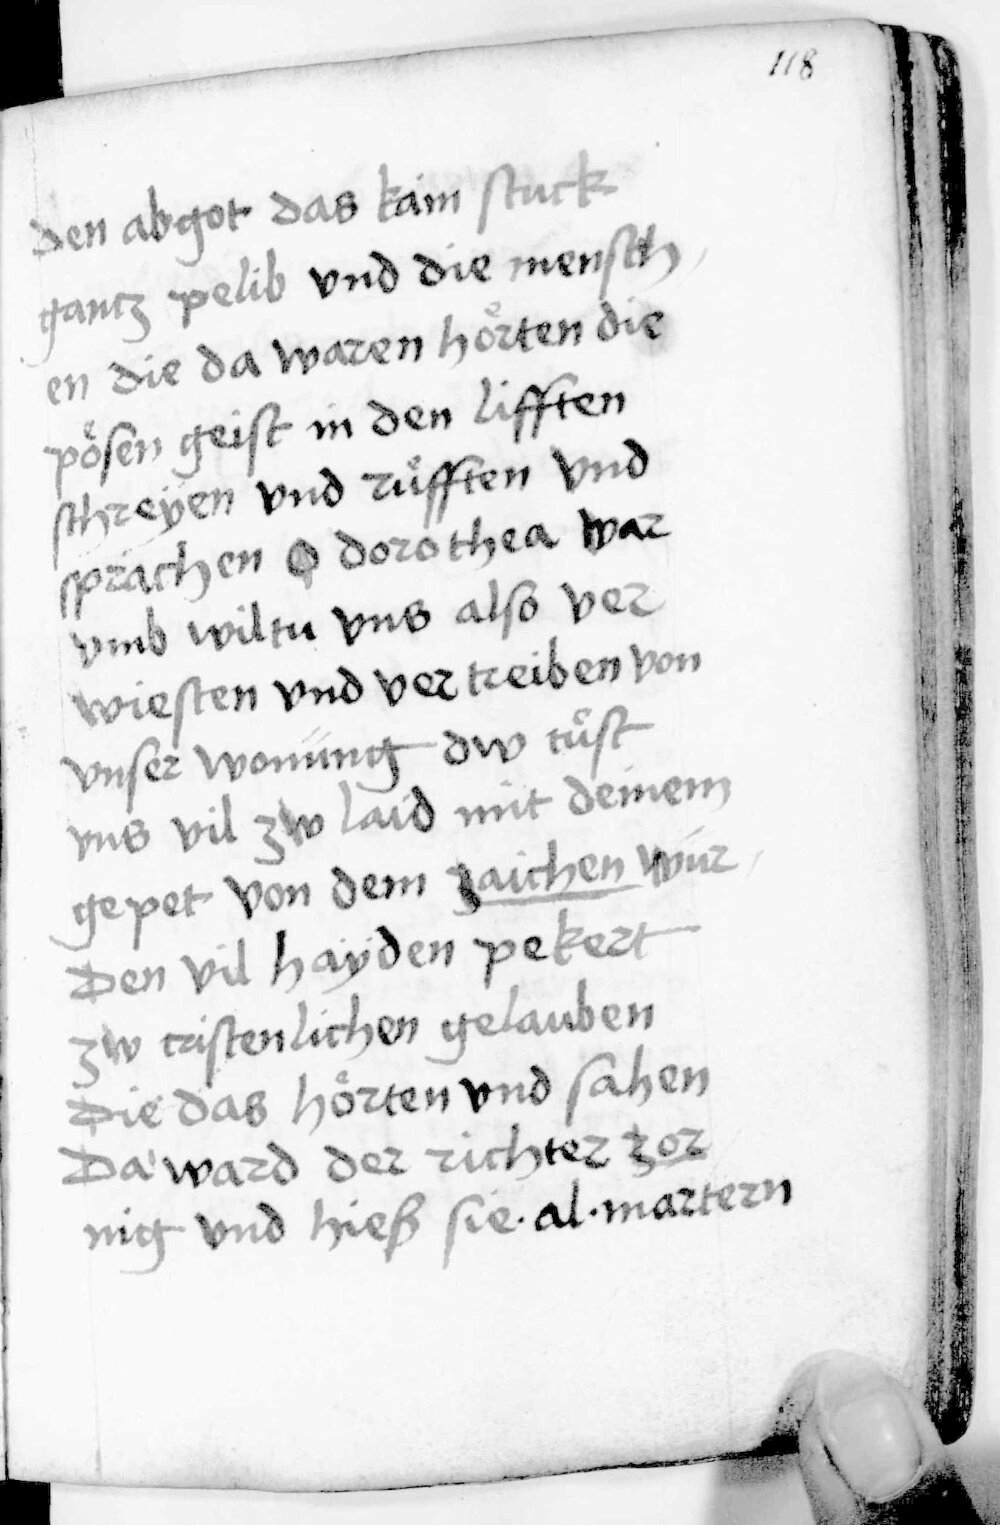 118
den abgot das kain stuck
gantz pelib vnd die mensch
en die da waren hoͤrten die
poͤsen geist in den lifften
schreÿen vnd ruͤfften vnd
sprachen O dorothea war
vmb wiltu vns also ver
wiesten vnd vertreiben von
vnser wonung dw tuͤst
vns vil zw laid mit deinem
gepet von dem zaichen wur
Den vil haÿden pekert
zw cristenlichen gelauben
Die das hoͤrten vnd sahen
Da ward der richter zor
nig vnd hieß sie · al · martern